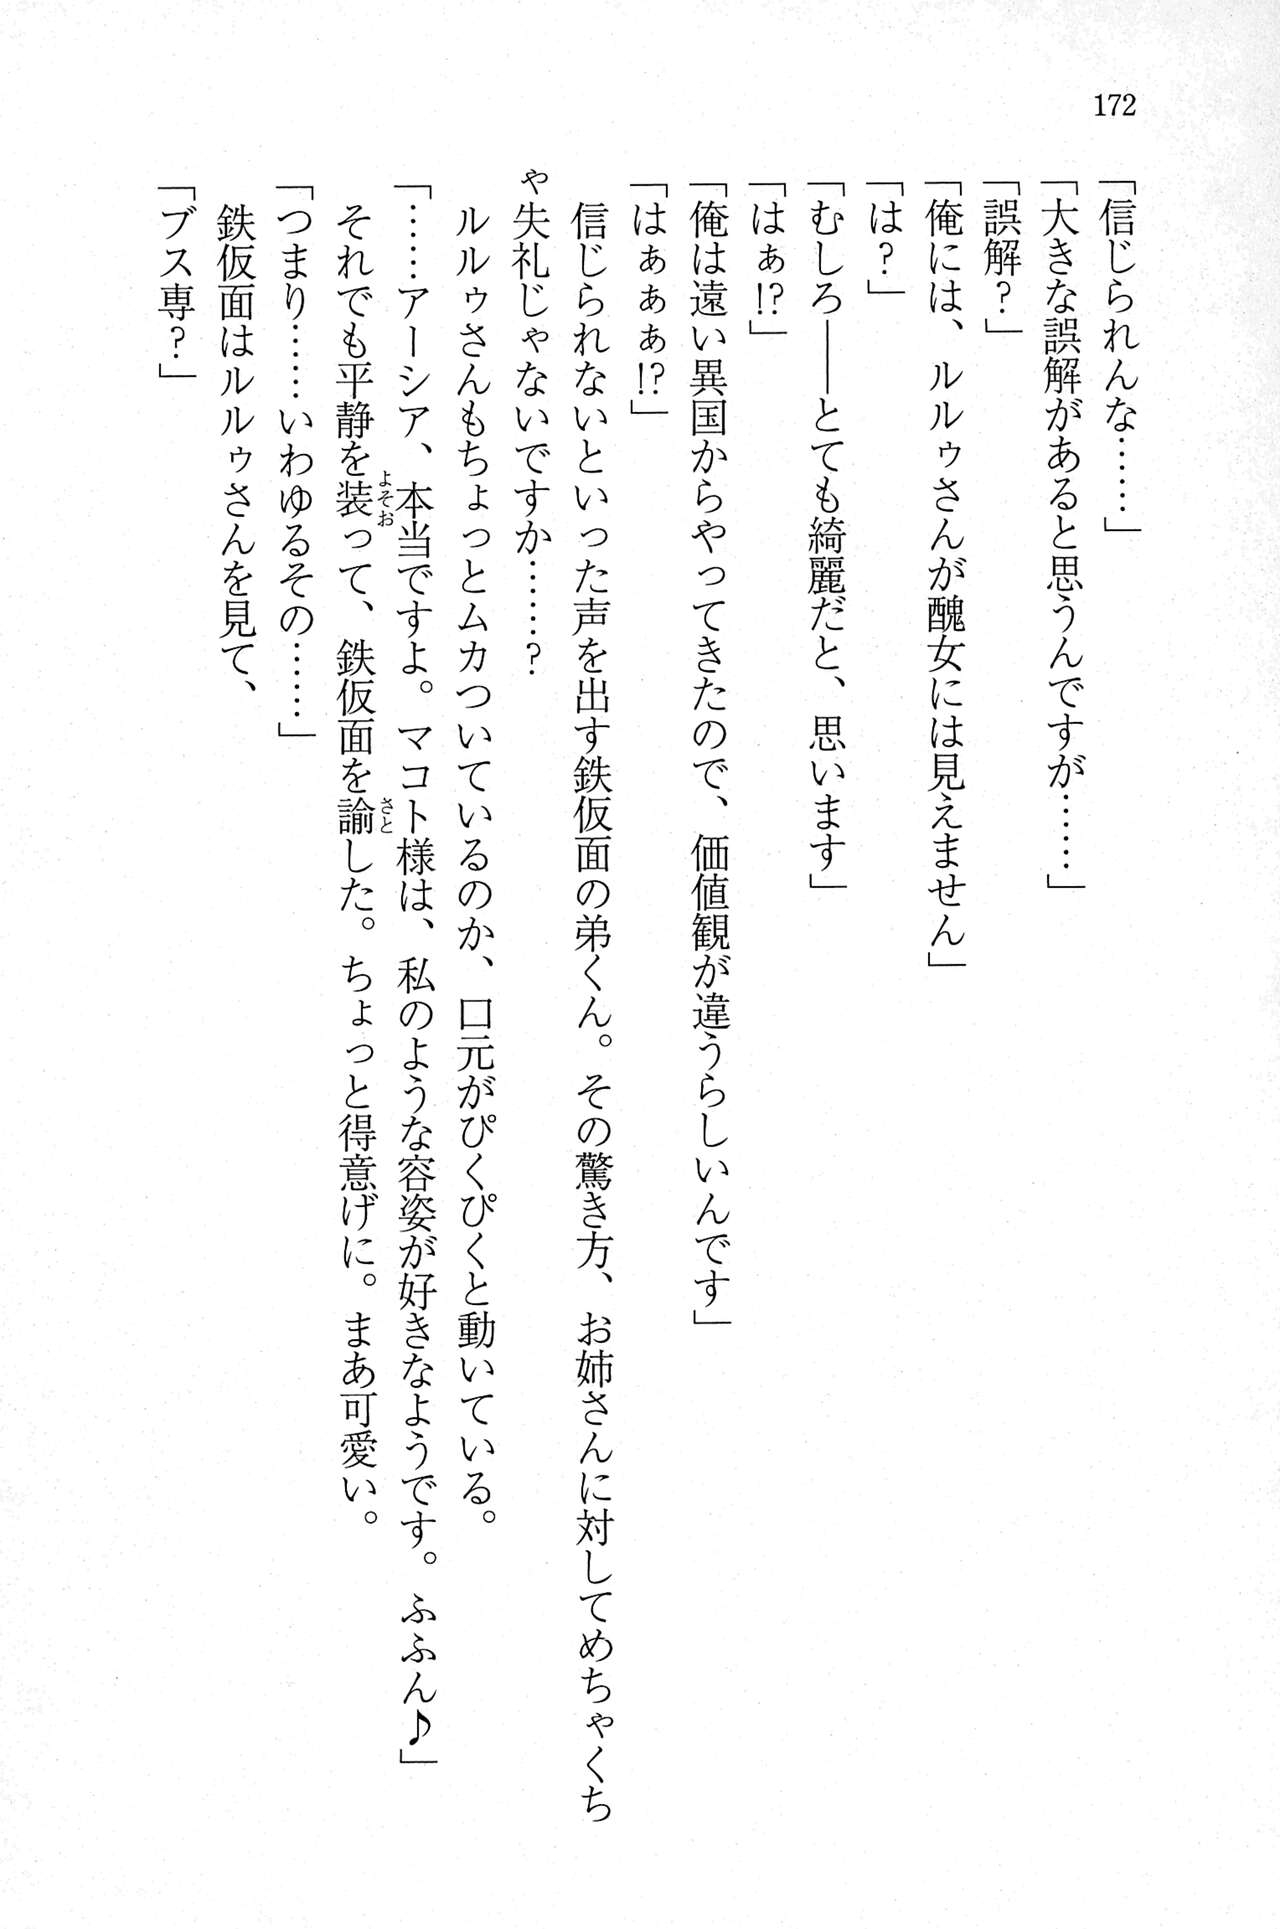 172
「信じられんな……」
「大きな誤解があると思うんですが……」
「誤解？」
「俺には、ルルゥさんが醜女には見えません」
「は？」
「むしろ――とても綺麗だと、思います」
「はぁ!?」
「俺は遠い異国からやってきたので、価値観が違うらしいんです」
「はぁぁぁ!?」
信じられないといった声を出す鉄仮面の弟くん。その驚き方、お姉さんに対してめちゃくち
ゃ失礼じゃないですか……？
ルルゥさんもちょっとムカついているのか、口元がぴくぴくと動いている。
「……アーシア、本当ですよ。マコト様は、私のような容姿が好きなようです。ふふん♪」
それでも平静を装って、鉄仮面を諭した。ちょっと得意げに。まあ可愛い。
よそお
さと
「つまり……いわゆるその……」
鉄仮面はルルゥさんを見て、
「ブス専？」